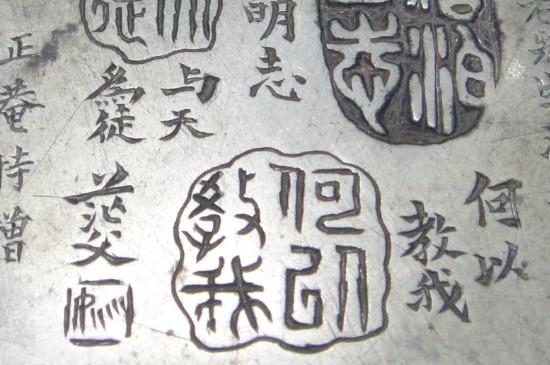 何以
教我
何以
教我
泊
志
明志
与天
為徒
茫父
正菴